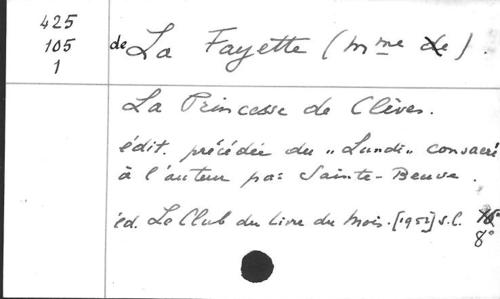 425
105
1
de La Fayette (Mme de).
La Princesse de Clèves.
édit. précédée du "Lundi" consacré
à l'auteur par Sainte-Beuve.
éd. Le Club du Livre du Mois. [1952] s.l.
8°